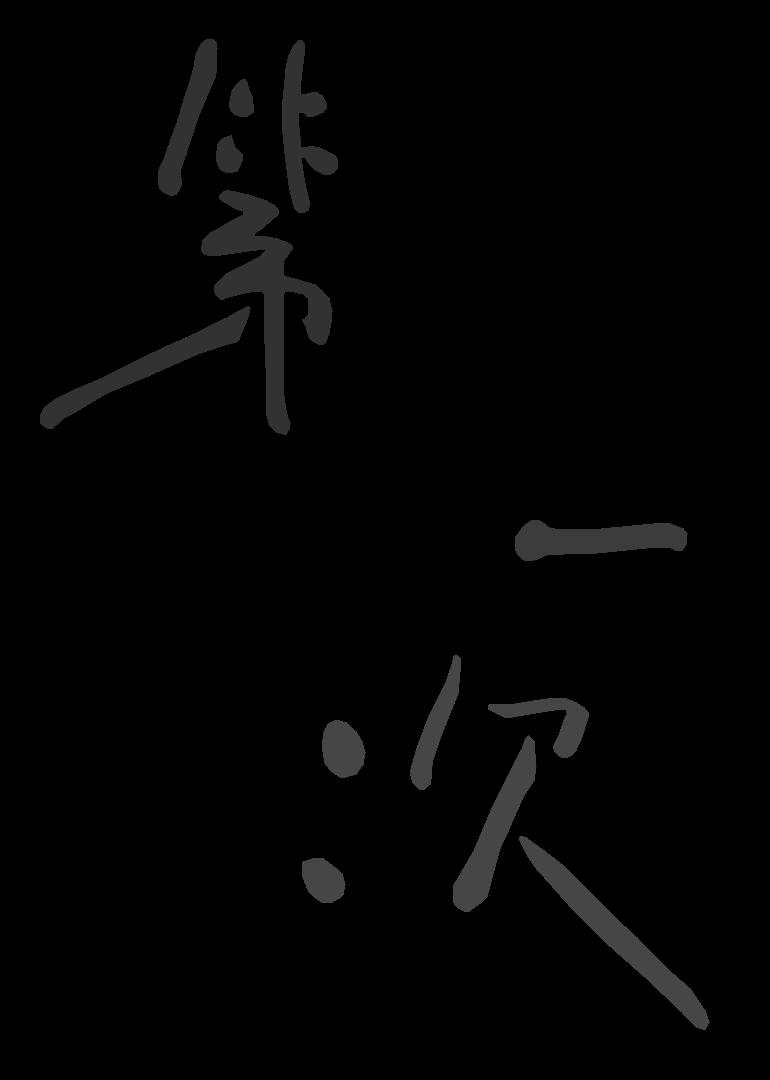 第
一
次